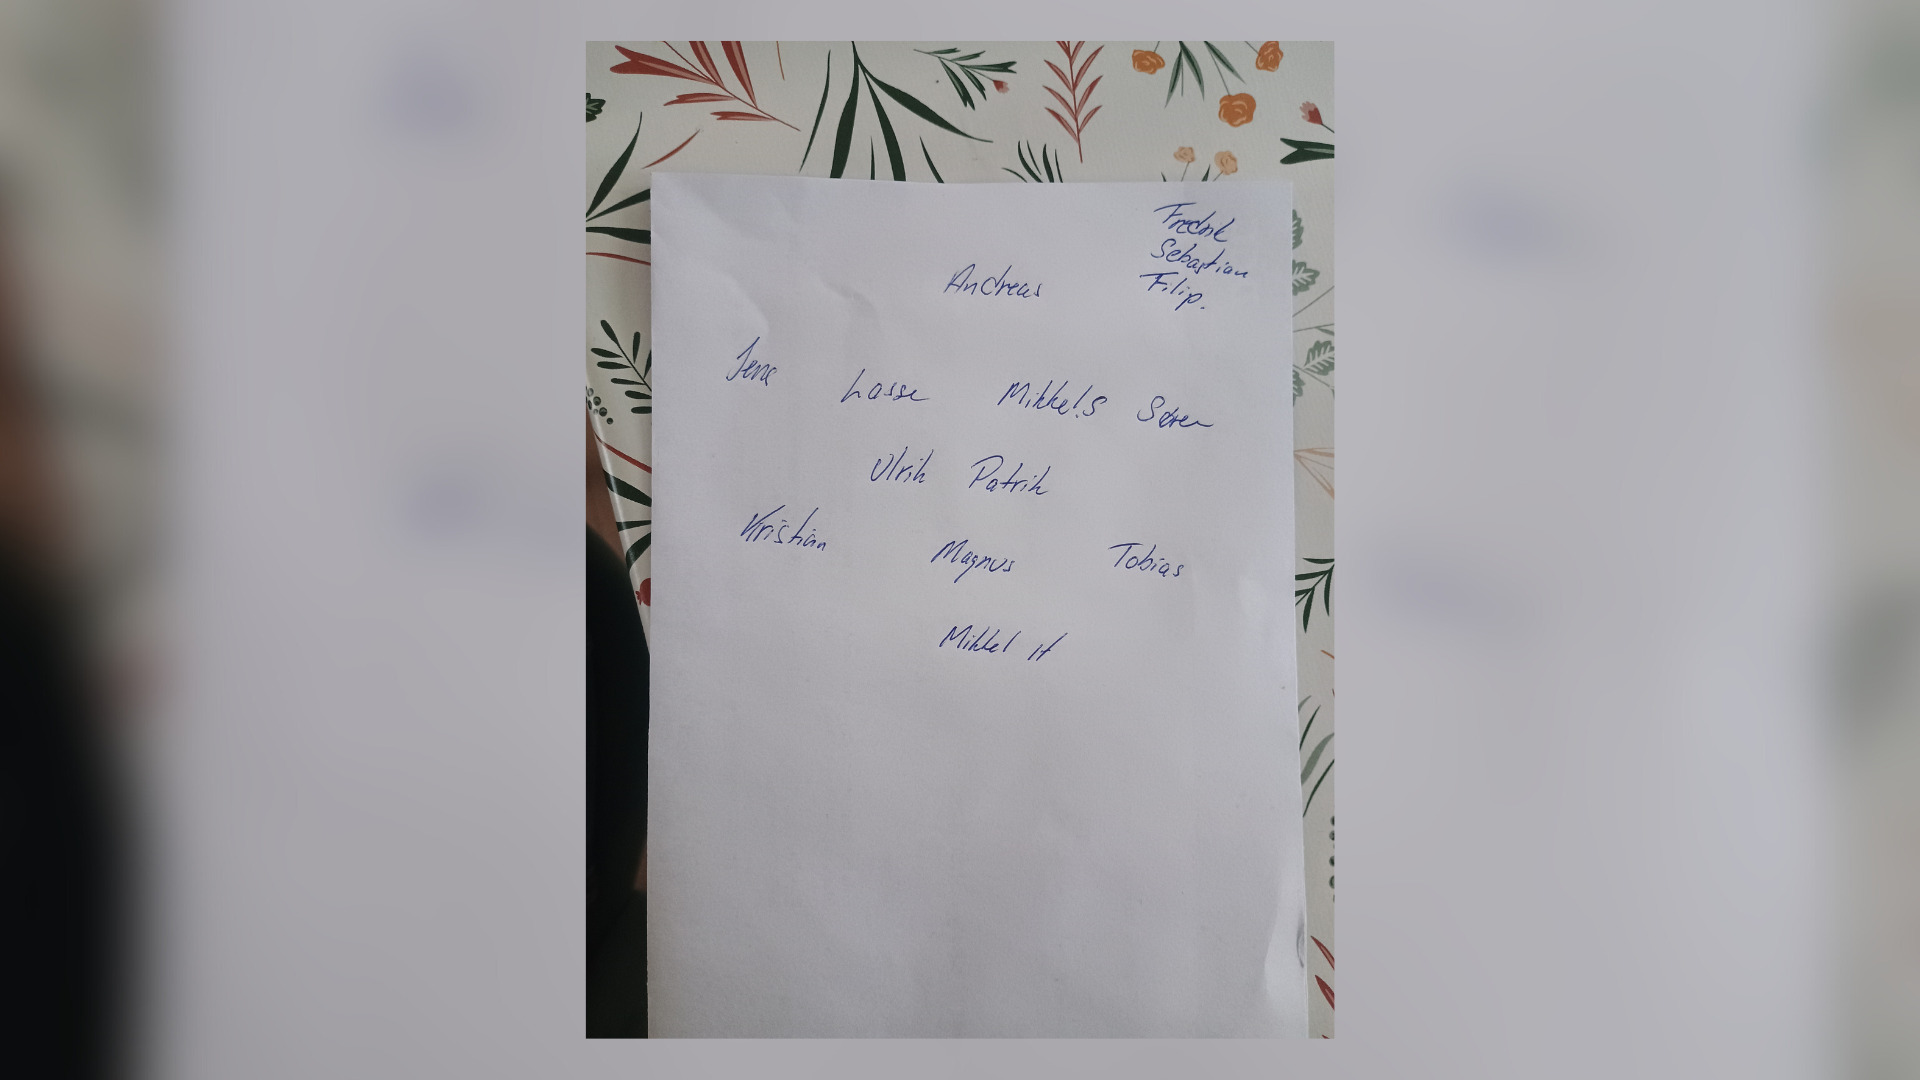 Fredrik
Sebastian
Filip.
Andreas
Jens Lasse Mikkel.S Søren
Ulrik Patrik
Kristian Magnus Tobias
Mikkel H